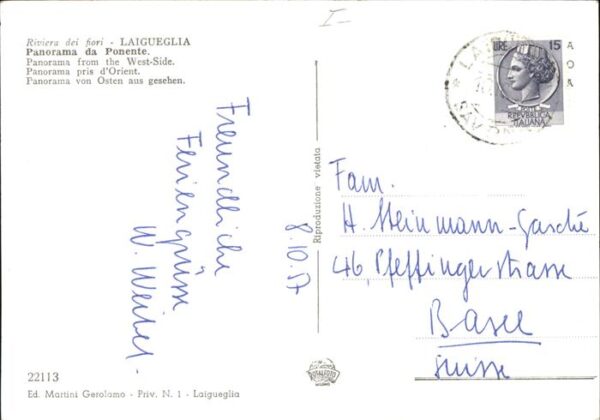 Riviera dei fiori - LAIGUEGLIA
Panorama da Ponente.
Panorama from the West-Side.
Panorama pris d'Orient.
Panorama von Osten aus gesehen.
I-
LIRE 15
REPVBBLICA
ITALIANA
Freundliche
Feriengrüsse
W. Weibel.
8.10.57
Riproduzione vietata
Fam.
H. Steinmann-Gasché
46, Pfeffingerstrasse
Basel
Suisse
22113
Ed. Martini Gerolamo - Priv. N. 1 - Laigueglia